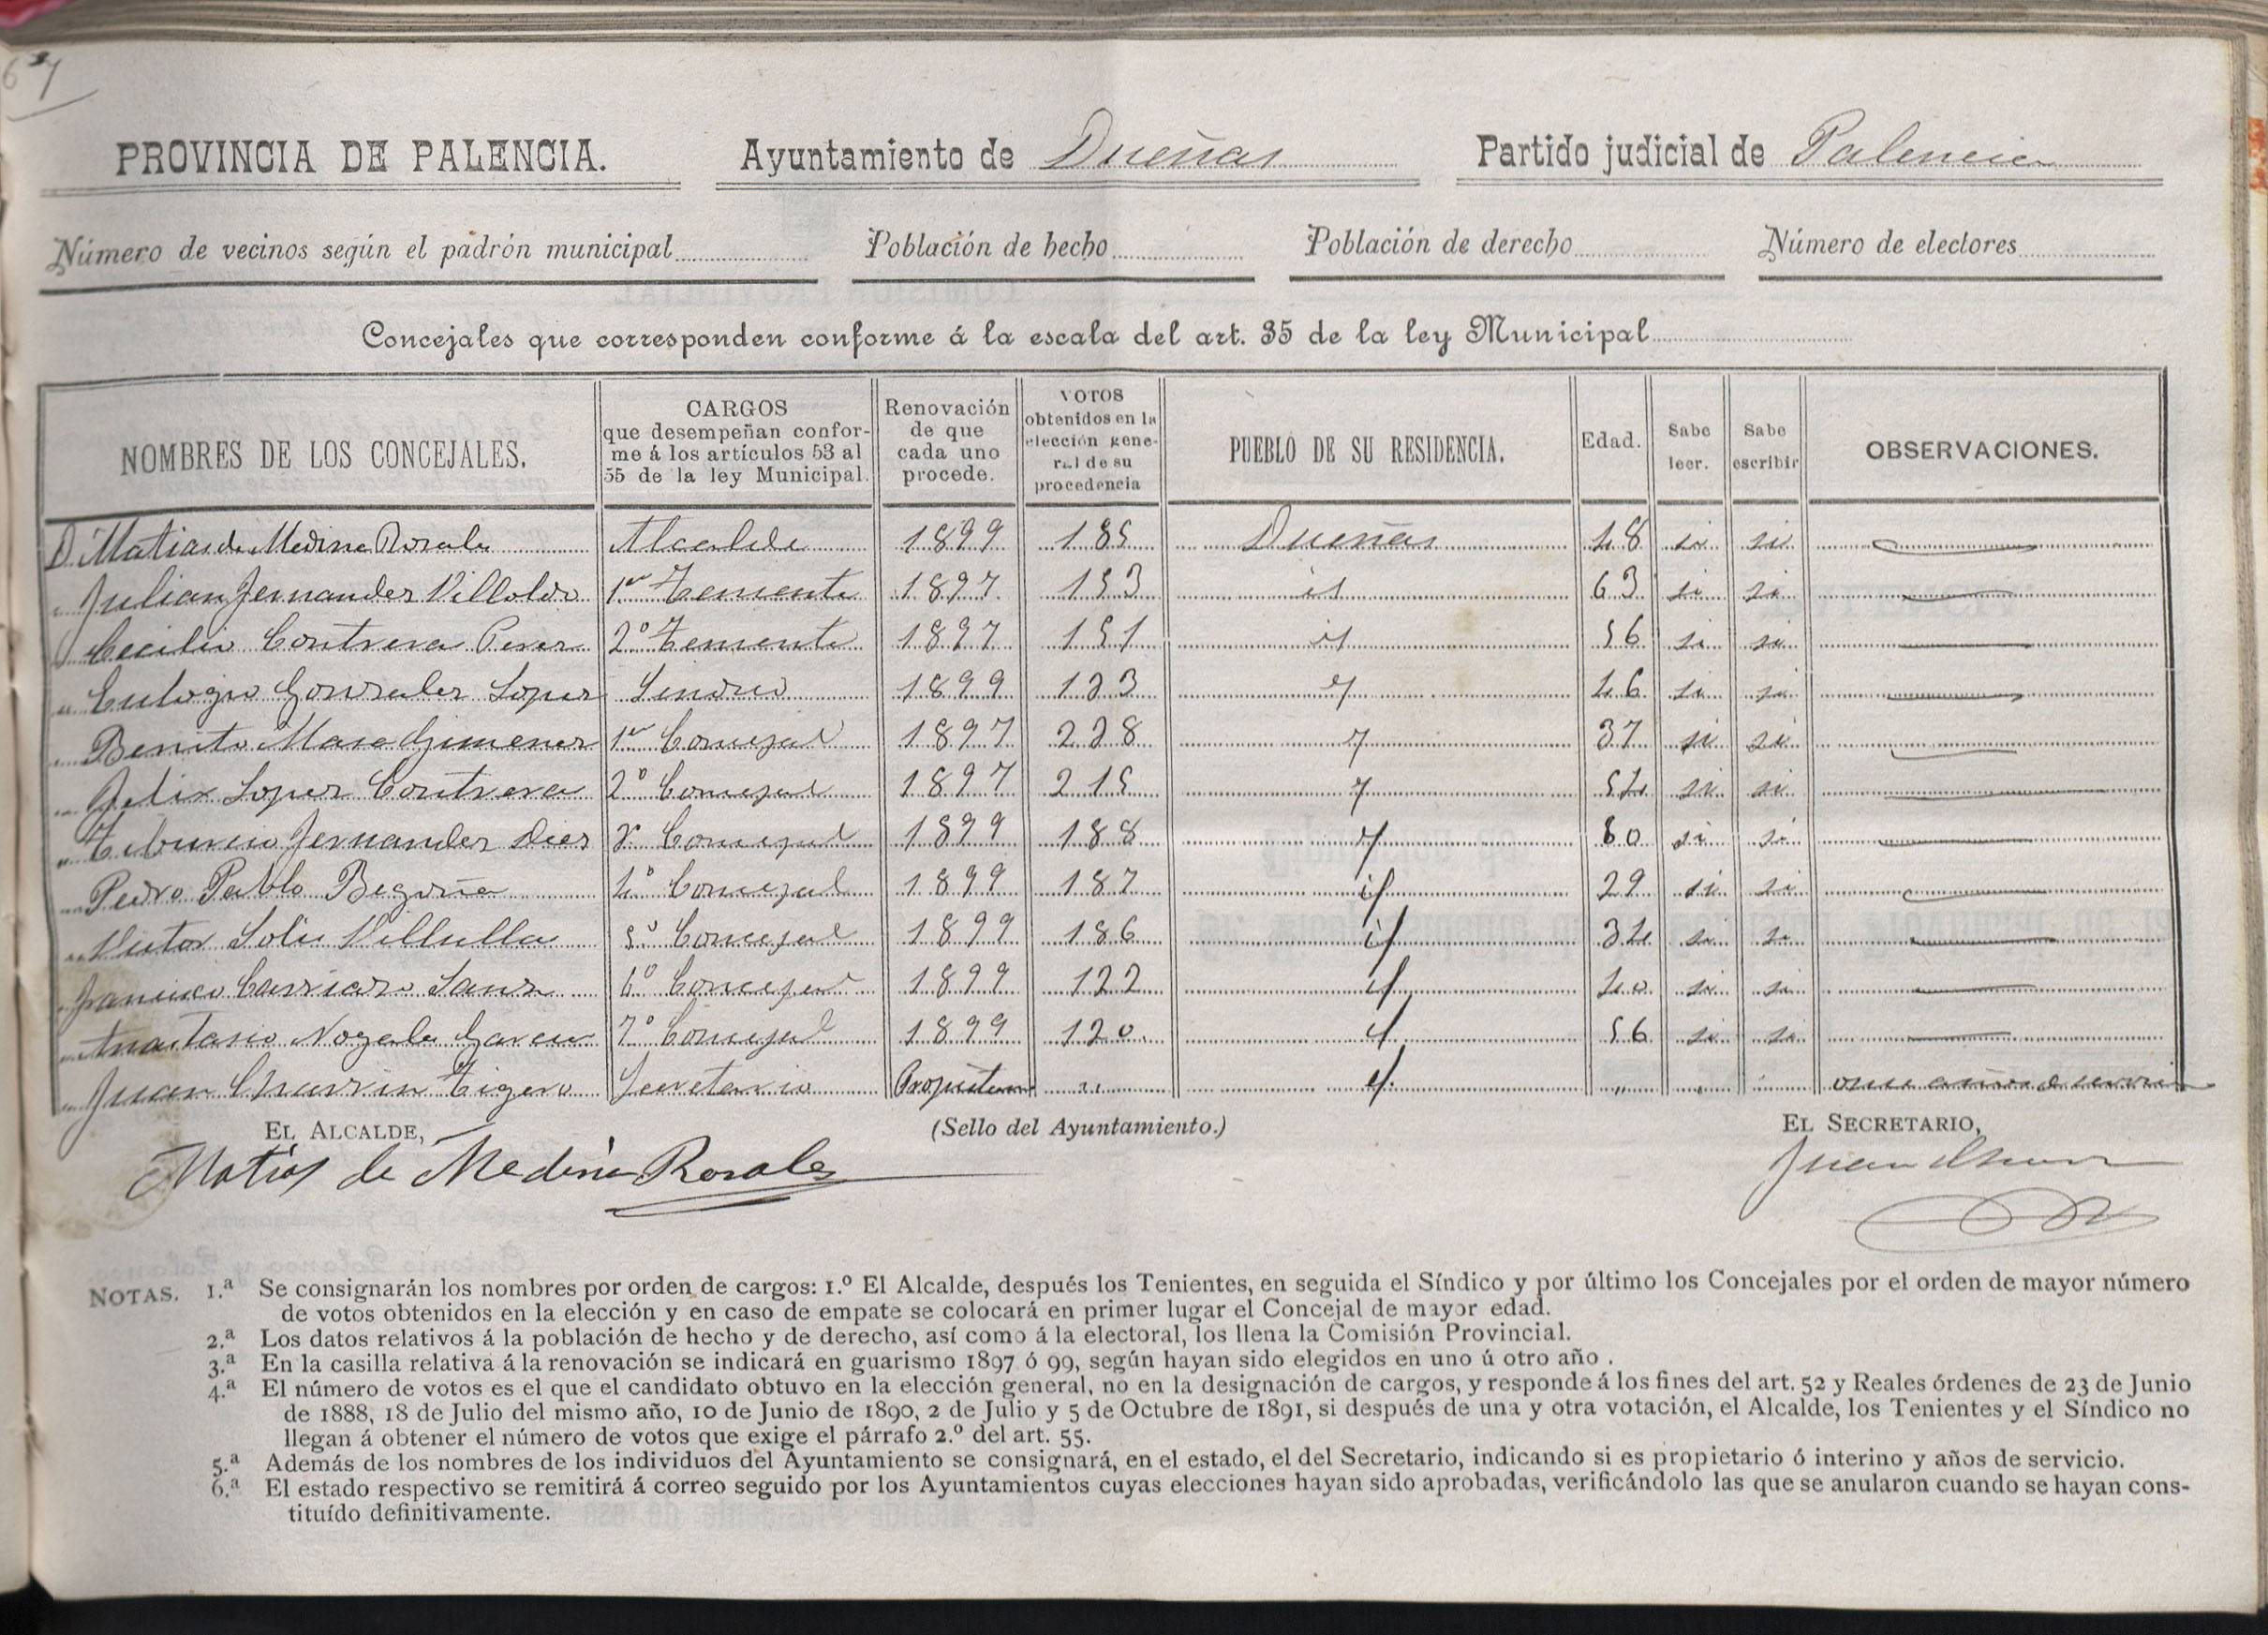 67
PROVINCIA DE PALENCIA. Ayuntamiento de Dueñas Partido judicial de Palencia
Número de vecinos según el padrón municipal Población de hecho Población de derecho Número de electores
Concejales que corresponden conforme á la escala del art. 35 de la ley Municipal
NOMBRES DE LOS CONCEJALES. CARGOS que desempeñan confor- me á los artículos 53 al 55 de la ley Municipal. Renovación de que cada uno procede. VOTOS obtenidos en la elección gene- ral de su procedencia PUEBLO DE SU RESIDENCIA. Edad. Sabe leer. Sabe escribir OBSERVACIONES.
D. Matias de Medina Rosales Alcalde 1899 185 Dueñas 48 si si
" Julian Fernandez Villoldo 1er Teniente 1897 153 id 63 si si
" Cecilio Contreras Perez 2º Teniente 1897 151 id 56 si si
" Eulogio Gonzalez Lopez Sindico 1899 123 id 46 si si
" Benito Gimenez 1er Concejal 1897 228 id 37 si si
" Felix Lopez Contreras 2º Concejal 1897 215 id 54 si si
" Tiburcio Fernandez Diez 3º Concejal 1899 188 id 60 si si
" Pedro Pablo Begoña 4º Concejal 1899 187 id 29 si si
" Victor Solis Villulla 5º Concejal 1899 186 id 34 si si
" Francisco Carriazo Sanz 6º Concejal 1899 122 id 40 si si
" Anastasio Nozales Garcia 7º Concejal 1899 120. id 56 si si
" Juan Charrin Tigero Secretario Propietario " id. " " " once años de servicio
EL ALCALDE, (Sello del Ayuntamiento.) EL SECRETARIO,
Matias de Medina Rosales Juan Charrin
NOTAS. 1.ª Se consignarán los nombres por orden de cargos: 1.º El Alcalde, después los Tenientes, en seguida el Síndico y por último los Concejales por el orden de mayor número
de votos obtenidos en la elección y en caso de empate se colocará en primer lugar el Concejal de mayor edad.
2.ª Los datos relativos á la población de hecho y de derecho, así como á la electoral, los llena la Comisión Provincial.
3.ª En la casilla relativa á la renovación se indicará en guarismo 1897 ó 99, según hayan sido elegidos en uno ú otro año .
4.ª El número de votos es el que el candidato obtuvo en la elección general, no en la designación de cargos, y responde á los fines del art. 52 y Reales órdenes de 23 de Junio
de 1888, 18 de Julio del mismo año, 10 de Junio de 1890, 2 de Julio y 5 de Octubre de 1891, si después de una y otra votación, el Alcalde, los Tenientes y el Síndico no
llegan á obtener el número de votos que exige el párrafo 2.º del art. 55.
5.ª Además de los nombres de los individuos del Ayuntamiento se consignará, en el estado, el del Secretario, indicando si es propietario ó interino y años de servicio.
6.ª El estado respectivo se remitirá á correo seguido por los Ayuntamientos cuyas elecciones hayan sido aprobadas, verificándolo las que se anularon cuando se hayan cons-
tituído definitivamente.